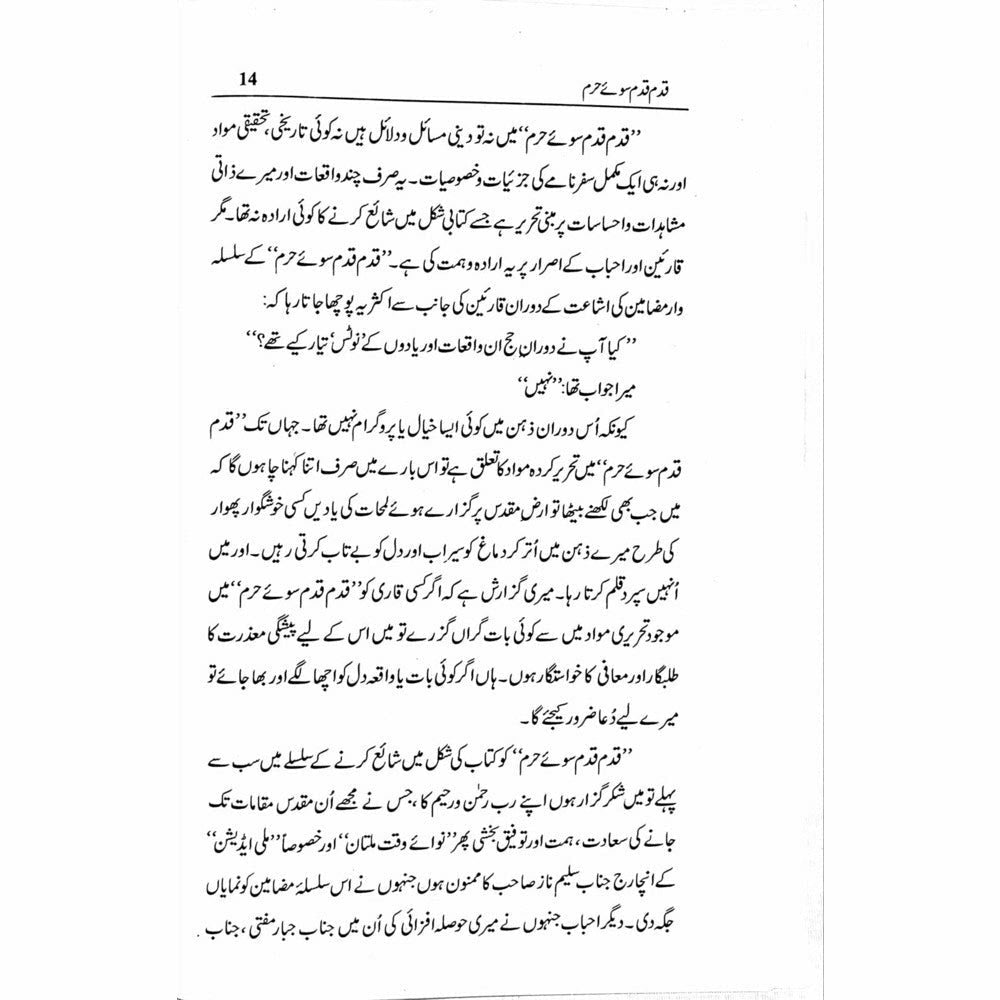 قدم قدم سوئے حرم
14
”قدم قدم سوئے حرم“ میں نہ تو دینی مسائل و دلائل ہیں نہ کوئی تاریخی، تحقیقی مواد
اور نہ ہی ایک مکمل سفرنامے کی جزئیات و خصوصیات۔ یہ صرف چند واقعات اور میرے ذاتی
مشاہدات و احساسات پر مبنی تحریر ہے جسے کتابی شکل میں شائع کرنے کا کوئی ارادہ نہ تھا۔ مگر
قارئین اور احباب کے اصرار پر یہ ارادہ و ہمت کی ہے۔ ”قدم قدم سوئے حرم“ کے سلسلہ
وار مضامین کی اشاعت کے دوران قارئین کی جانب سے اکثر یہ پوچھا جاتا رہا کہ:
”کیا آپ نے دورانِ حج ان واقعات اور یادوں کے ’نوٹس‘ تیار کیے تھے؟“
میرا جواب تھا: ”نہیں“
کیونکہ اُس دوران ذہن میں کوئی ایسا خیال یا پروگرام نہیں تھا۔ جہاں تک ”قدم
قدم سوئے حرم“ میں تحریر کردہ مواد کا تعلق ہے تو اس بارے میں صرف اتنا کہنا چاہوں گا کہ
میں جب بھی لکھنے بیٹھا تو ارضِ مقدس پر گزارے ہوئے لمحات کی یادیں کسی خوشگوار پھوار
کی طرح میرے ذہن میں اُتر کر دماغ کو سیراب اور دل کو بے تاب کرتی رہیں۔ اور میں
اُنہیں سپردِ قلم کرتا رہا۔ میری گزارش ہے کہ اگر کسی قاری کو ”قدم قدم سوئے حرم“ میں
موجود تحریری مواد میں سے کوئی بات گراں گزرے تو میں اس کے لیے پیشگی معذرت کا
طلبگار اور معافی کا خواستگار ہوں۔ ہاں اگر کوئی بات یا واقعہ دل کو اچھا لگے اور بھا جائے تو
میرے لیے دُعا ضرور کیجئے گا۔
”قدم قدم سوئے حرم“ کو کتاب کی شکل میں شائع کرنے کے سلسلے میں سب سے
پہلے تو میں شکر گزار ہوں اپنے رب رحمٰن و رحیم کا، جس نے مجھے اُن مقدس مقامات تک
جانے کی سعادت، ہمت اور توفیق بخشی پھر ”نوائے وقت ملتان“ اور خصوصاً ”ملی ایڈیشن“
کے انچارج جناب سلیم ناز صاحب کا ممنون ہوں جنہوں نے اس سلسلۂ مضامین کو نمایاں
جگہ دی۔ دیگر احباب جنہوں نے میری حوصلہ افزائی کی اُن میں جناب جبار مفتی، جناب